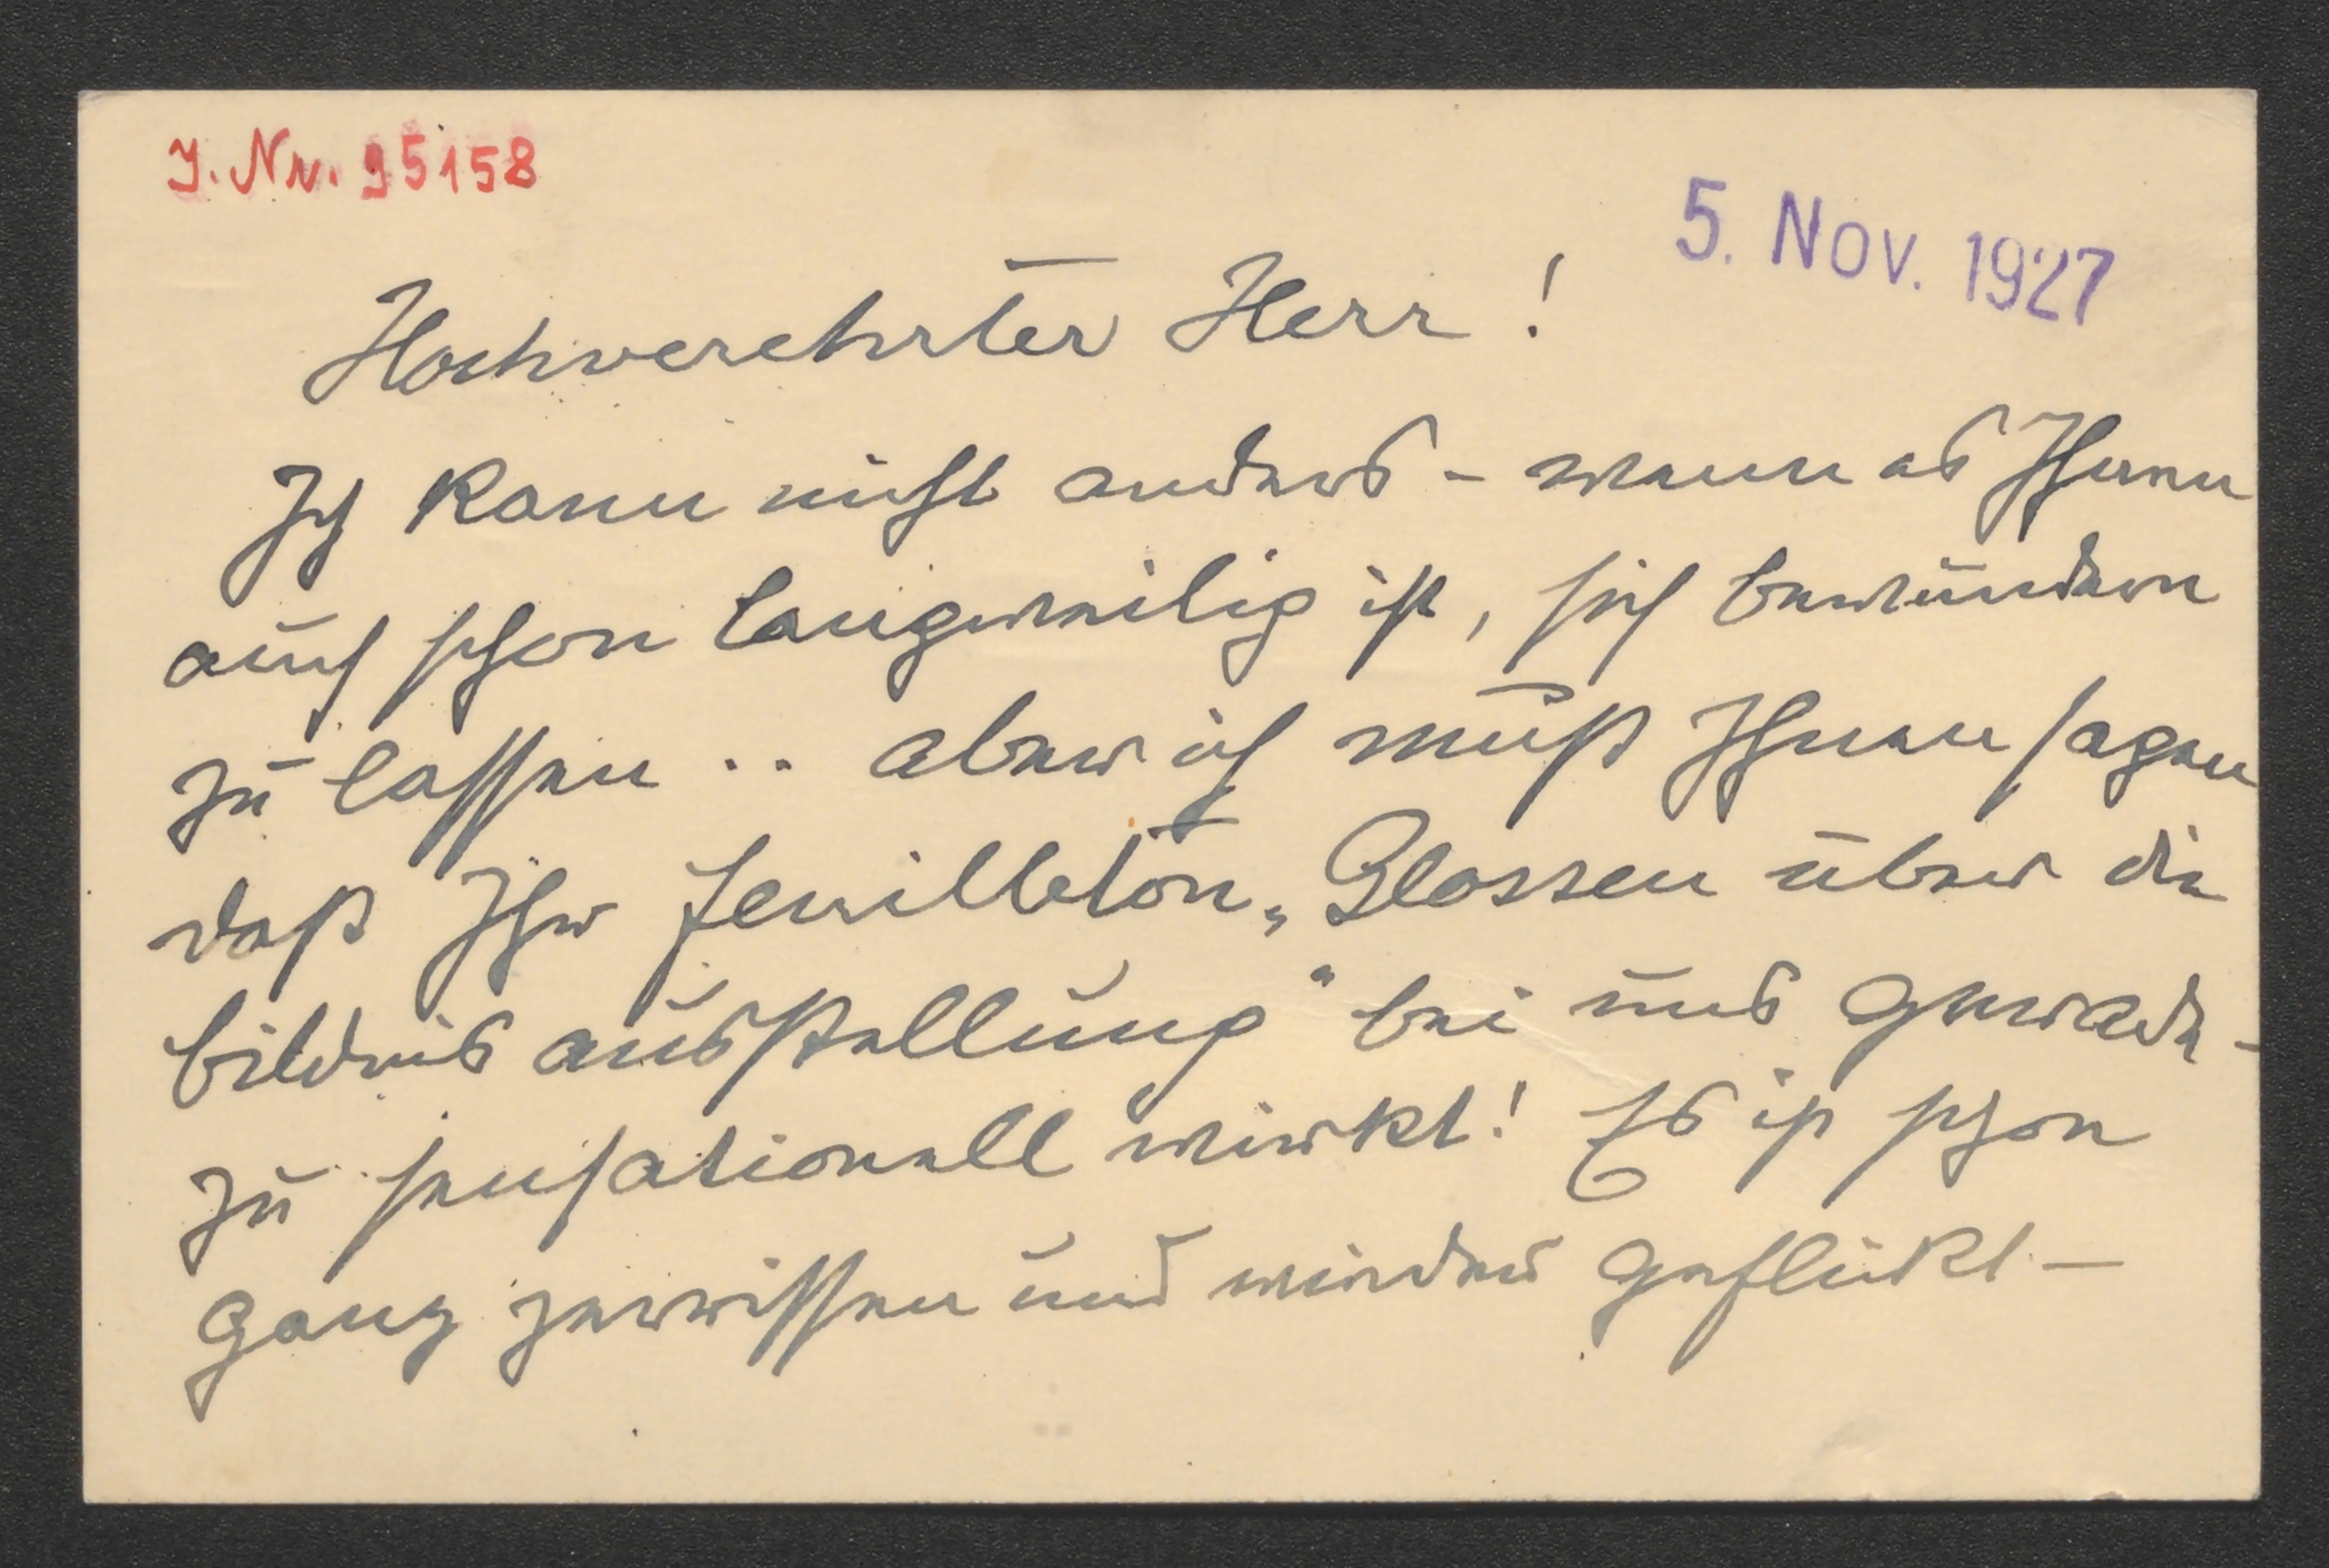 J. Nr. 95158
5. Nov. 1927
Hochverehrter Herr !
Ich kann nicht anders - wenn es Ihnen
auch schon langweilig ist, sich bewundern
zu lassen .. aber ich muß Ihnen sagen
daß Ihr Feuilleton „Glossen über die
bildnisausstellung" bei uns gerade-
zu sensationell wirkt! Es ist schon
ganz zerrissen und wieder geflickt —